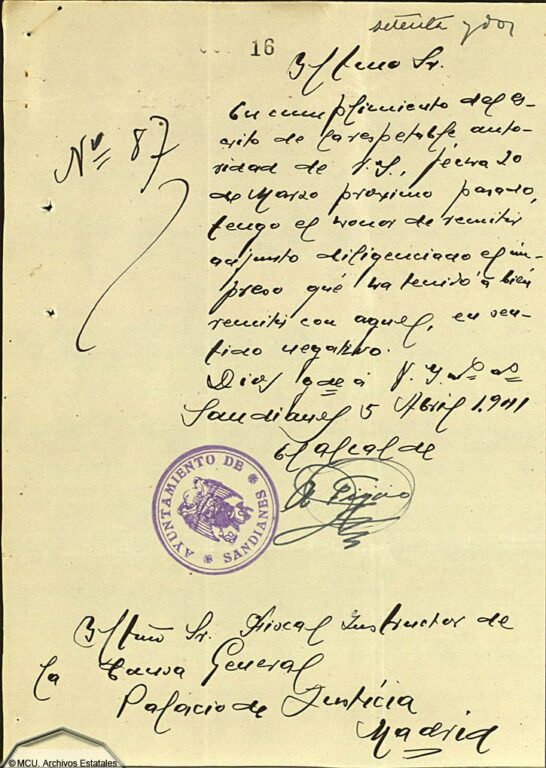 setenta y dos
16
Iltmo Sr.
Nº 87
En cumplimiento del es-
crito de la respetable auto-
ridad de V.I., fecha 20
de Marzo proximo pasado,
tengo el honor de remitir
adjunto diligenciado el im-
preso que ha tenido á bien
remitir con aquel, en sen-
tido negativo.
Dios gde á V. I. ms as
Sandianes 5 Abril 1.941
El alcalde
AYUNTAMIENTO DE SANDIANES
Iltmo Sr. Fiscal Instructor de
la Causa General
Palacio de Justicia
Madrid
© MCU. Archivos Estatales